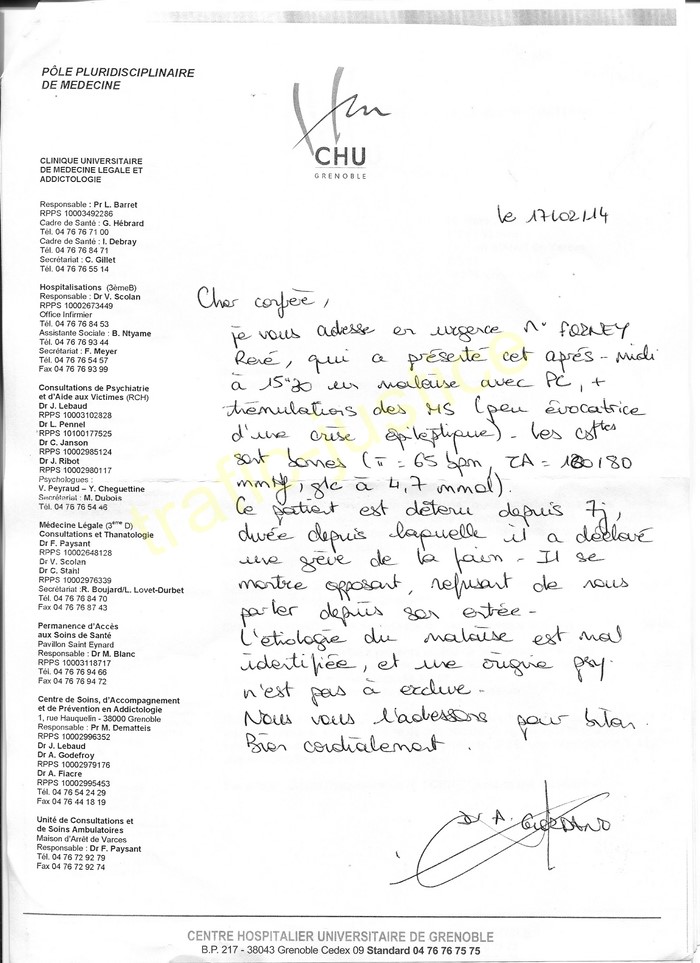 PÔLE PLURIDISCIPLINAIRE
DE MEDECINE
CHU
GRENOBLE
CLINIQUE UNIVERSITAIRE
DE MEDECINE LEGALE ET
ADDICTOLOGIE
Responsable : Pr L. Barret
RPPS 10003492286
Cadre de Santé : G. Hébrard
Tél. 04 76 76 71 00
Cadre de Santé : I. Debray
Tél. 04 76 76 84 71
Secrétariat : C. Gillet
Tél. 04 76 76 55 14
Hospitalisations (3èmeB)
Responsable : Dr V. Scolan
RPPS 10002673449
Office Infirmier
Tél. 04 76 76 84 53
Assistante Sociale : B. Ntyame
Tél. 04 76 76 93 44
Secrétariat : F. Meyer
Tél. 04 76 76 54 57
Fax 04 76 76 93 99
Consultations de Psychiatrie
et d'Aide aux Victimes (RCH)
Dr J. Lebaud
RPPS 10003102828
Dr L. Pennel
RPPS 10100177525
Dr C. Janson
RPPS 10002985124
Dr J. Ribot
RPPS 10002980117
Psychologues :
V. Peyraud – Y. Cheguettine
Secrétariat : M. Dubois
Tél. 04 76 76 54 46
Médecine Légale (3ème D)
Consultations et Thanatologie
Dr F. Paysant
RPPS 10002648128
Dr V. Scolan
Dr C. Stahl
RPPS 10002976339
Secrétariat :R. Boujard/L. Lovet-Durbet
Tél. 04 76 76 84 70
Fax 04 76 76 87 43
Permanence d'Accès
aux Soins de Santé
Pavillon Saint Eynard
Responsable : Dr M. Blanc
RPPS 10003118717
Tél. 04 76 76 94 66
Fax 04 76 76 94 72
Centre de Soins, d'Accompagnement
et de Prévention en Addictologie
1, rue Hauquelin - 38000 Grenoble
Responsable : Pr M. Dematteis
RPPS 10002996352
Dr J. Lebaud
Dr A. Godefroy
RPPS 10002979176
Dr A. Fiacre
RPPS 10002995453
Tél. 04 76 54 24 29
Fax 04 76 44 18 19
Unité de Consultations et
de Soins Ambulatoires
Maison d'Arrêt de Varces
Responsable : Dr F. Paysant
Tél. 04 76 72 92 79
Fax 04 76 72 92 74
le 17/02/14
Cher confrère,
je vous adresse en urgence Mr FORNEY
René, qui a présenté cet après-midi
à 15h30 un malaise avec PC, +
trémulations des MS (peu évocatrice
d'une crise épileptique) - les cstes
sont bonnes ( = 65 bpm, TA = 180/80
mmHg, glc à 4,7 mmol).
Ce patient est détenu depuis 7j,
durée depuis laquelle il a déclaré
une grève de la faim - Il se
montre opposant, refusant de nous
parler depuis son entrée -
L'etiologie du malaise est mal
identifiée, et une origine psy
n'est pas à exclure -
Nous vous l'adressons pour bilan.
Bien cordialement.
Dr A. GIORDANO
trafic-justice
CENTRE HOSPITALIER UNIVERSITAIRE DE GRENOBLE
B.P. 217 - 38043 Grenoble Cedex 09 Standard 04 76 76 75 75